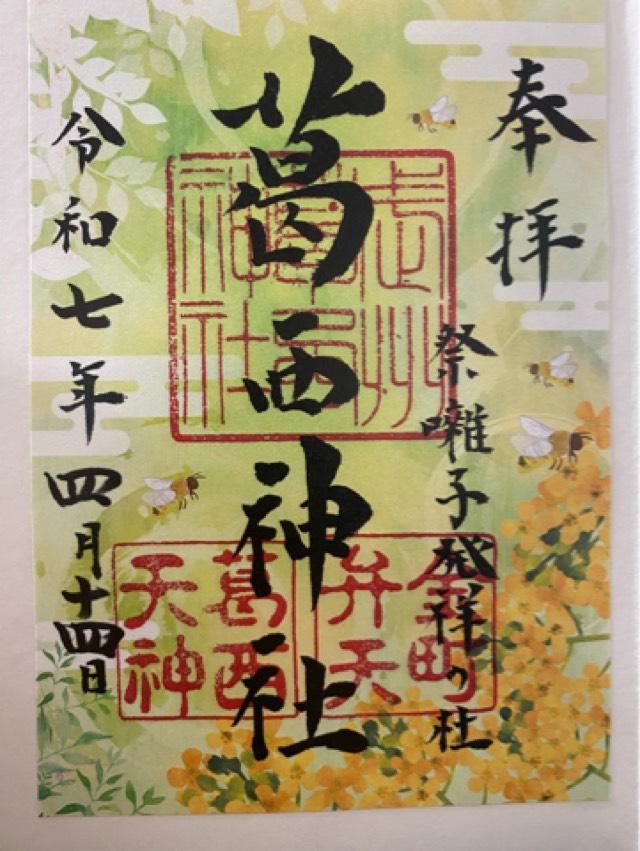 奉拝
祭囃子発祥の社
葛西神社
令和七年四月十四日
武州
葛西
神社
金町
弁天
葛西
天神